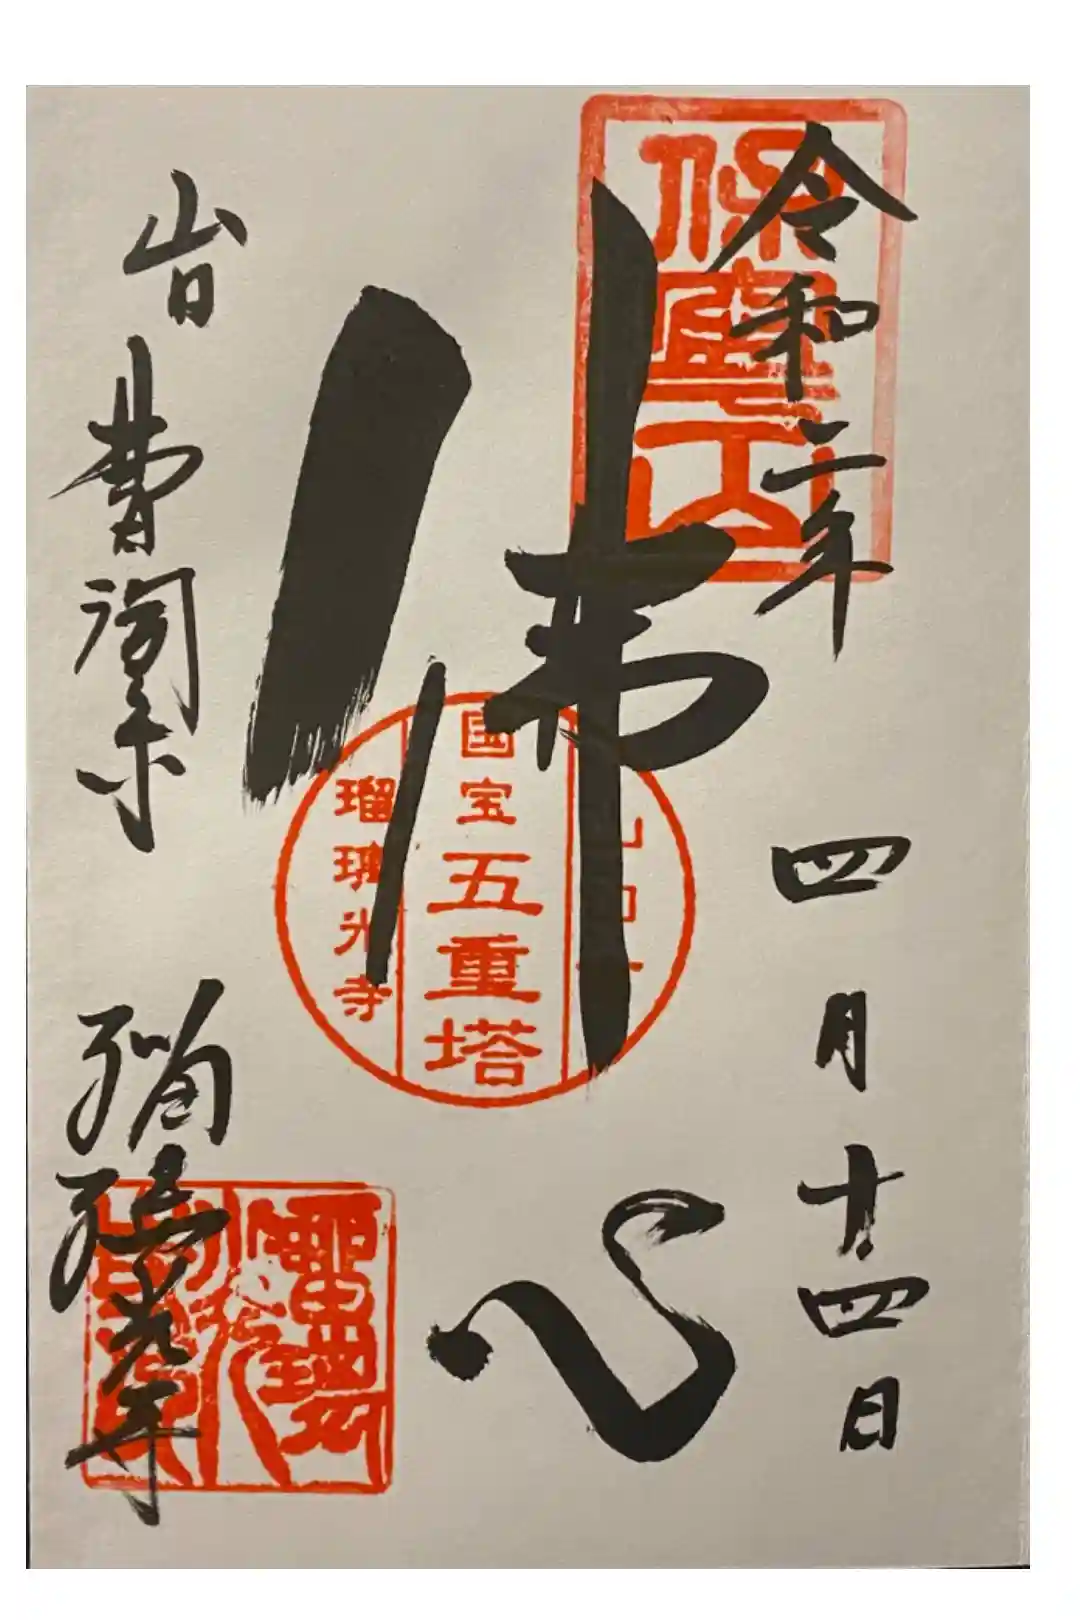 保寧山
令和二年 四月十四日
佛心
国宝
五重塔
瑠璃光寺
曹洞宗 瑠璃光寺